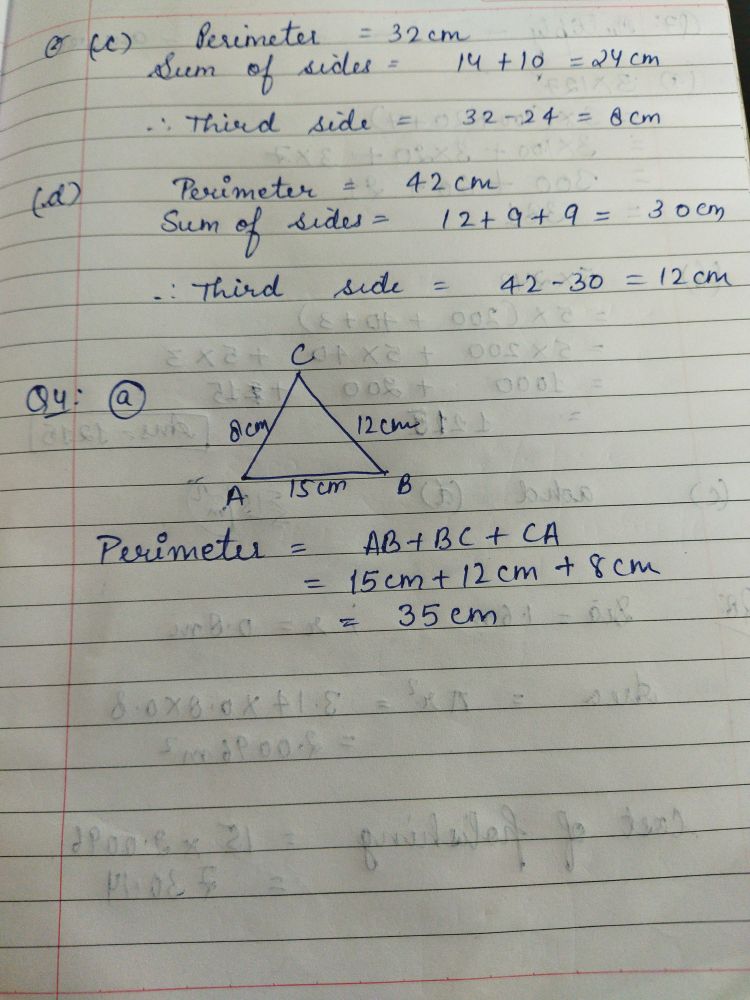 (c) Perimeter = 32 cm
Sum of sides = 14 + 10 = 24 cm
∴ Third side = 32 - 24 = 8 cm
(d) Perimeter = 42 cm
Sum of sides = 12 + 9 + 9 = 30 cm
∴ Third side = 42 - 30 = 12 cm
Q4: (a)
C
8 cm 12 cm
A 15 cm B
Perimeter = AB + BC + CA
= 15 cm + 12 cm + 8 cm
= 35 cm